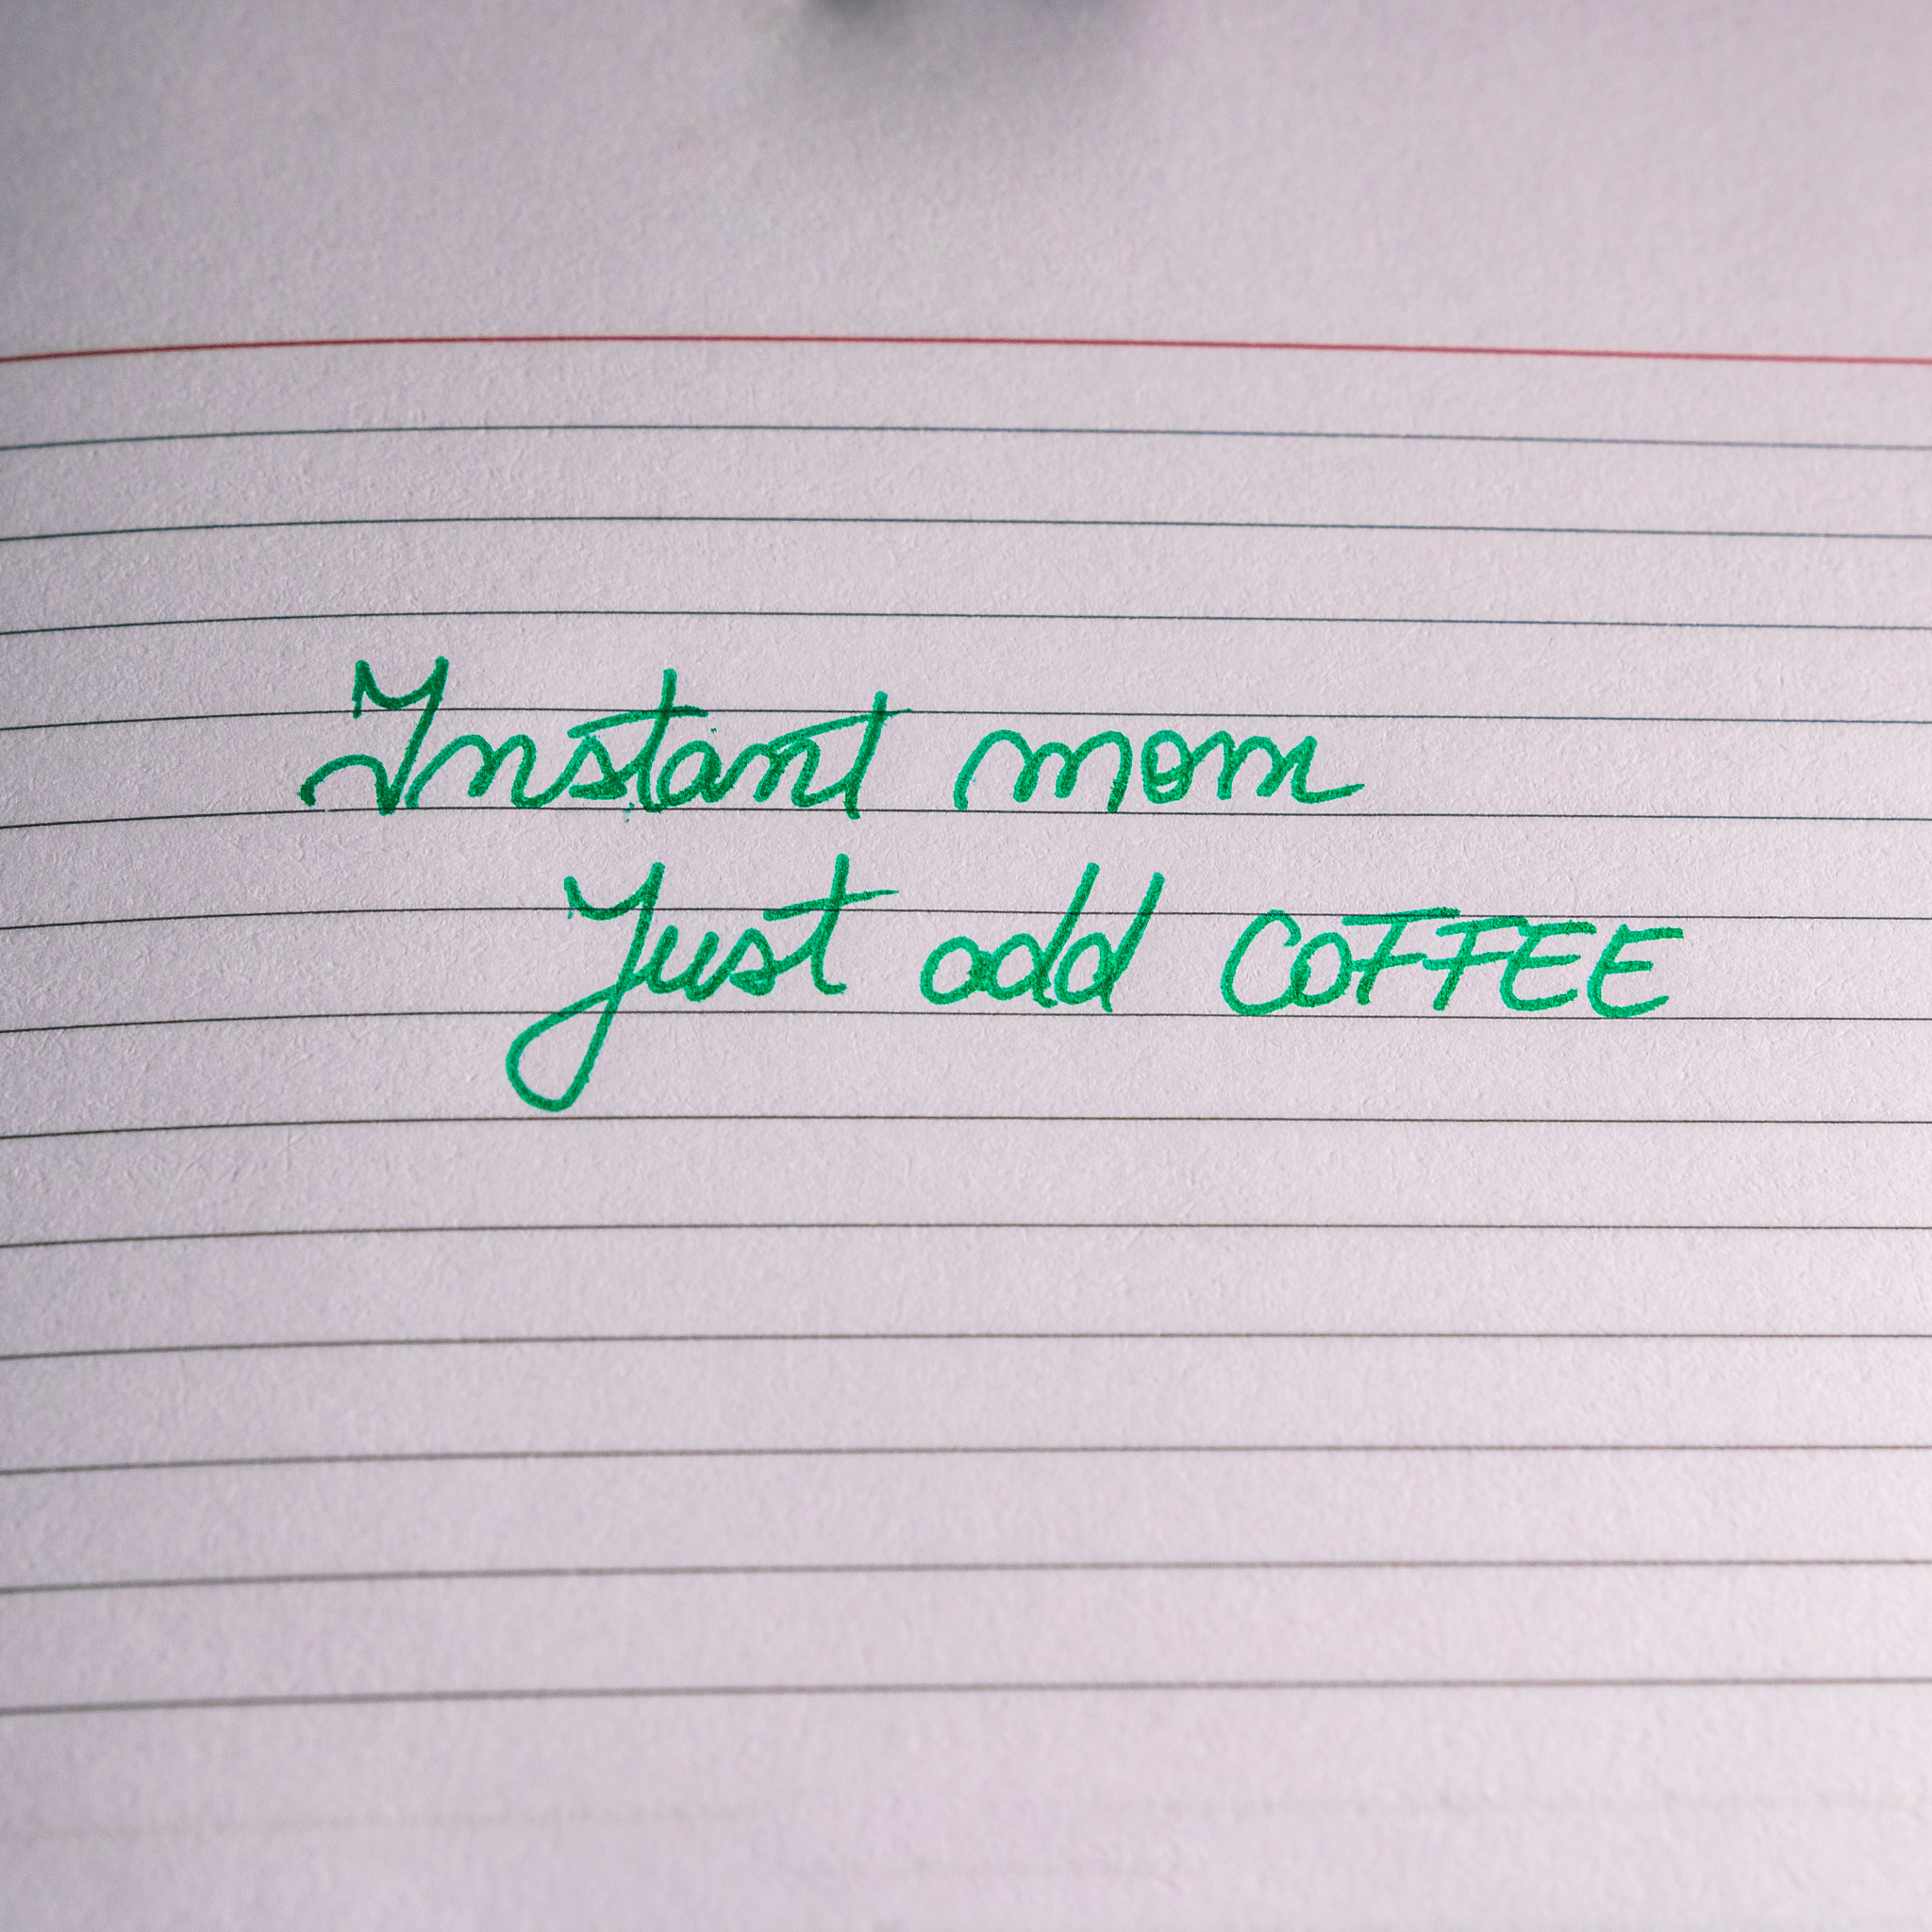 Instant mom
Just add COFFEE